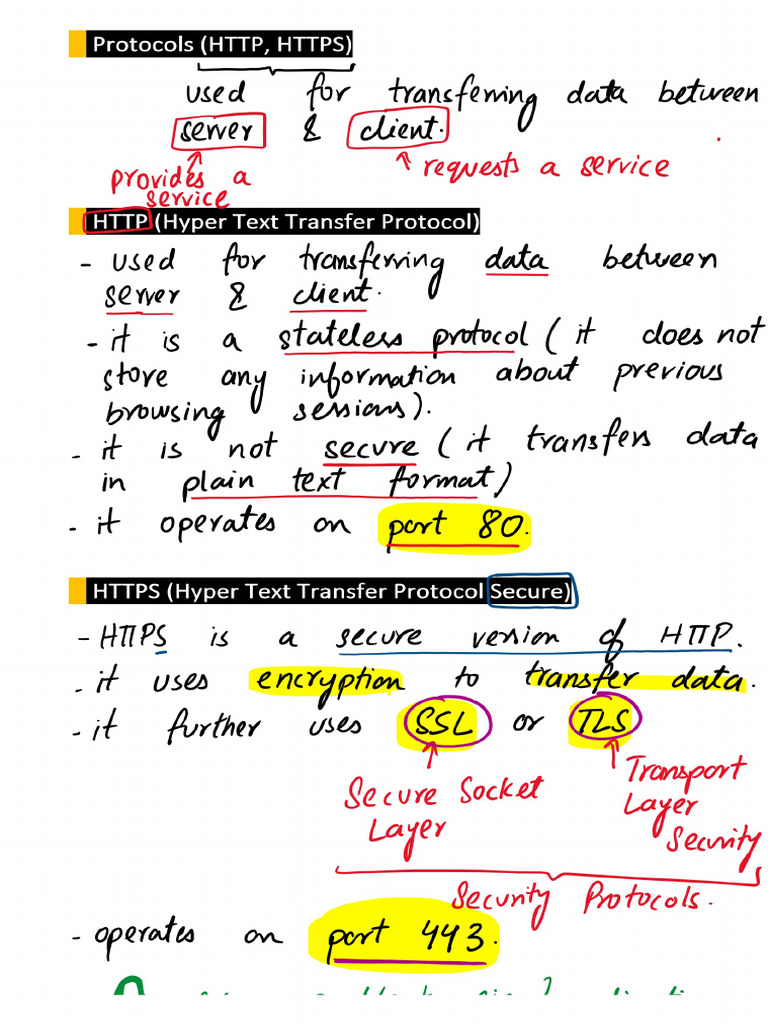 Protocols (HTTP, HTTPS)
used for transferring data between
server & client.
provides a service
requests a service
HTTP (Hyper Text Transfer Protocol)
- used for transferring data between
server & client.
- it is a stateless protocol (it does not
store any information about previous
browsing sessions).
- it is not secure (it transfers data
in plain text format)
- it operates on port 80.
HTTPS (Hyper Text Transfer Protocol Secure)
- HTTPS is a secure version of HTTP.
- it uses encryption to transfer data.
- it further uses SSL or TLS
Secure Socket Layer
Transport Layer Security
Security Protocols.
- operates on port 443.